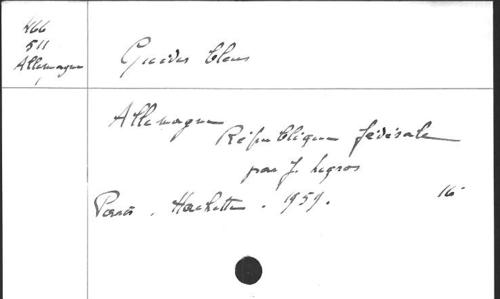 466
511
Allemagne
Guides bleus
Allemagne
République fédérale
par J. Legros
Paris. Hachette. 1959. 16°